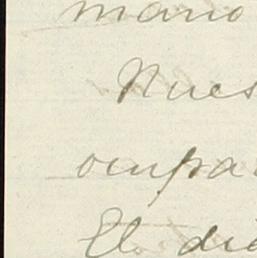 mano
Nues
ocupa
El dia